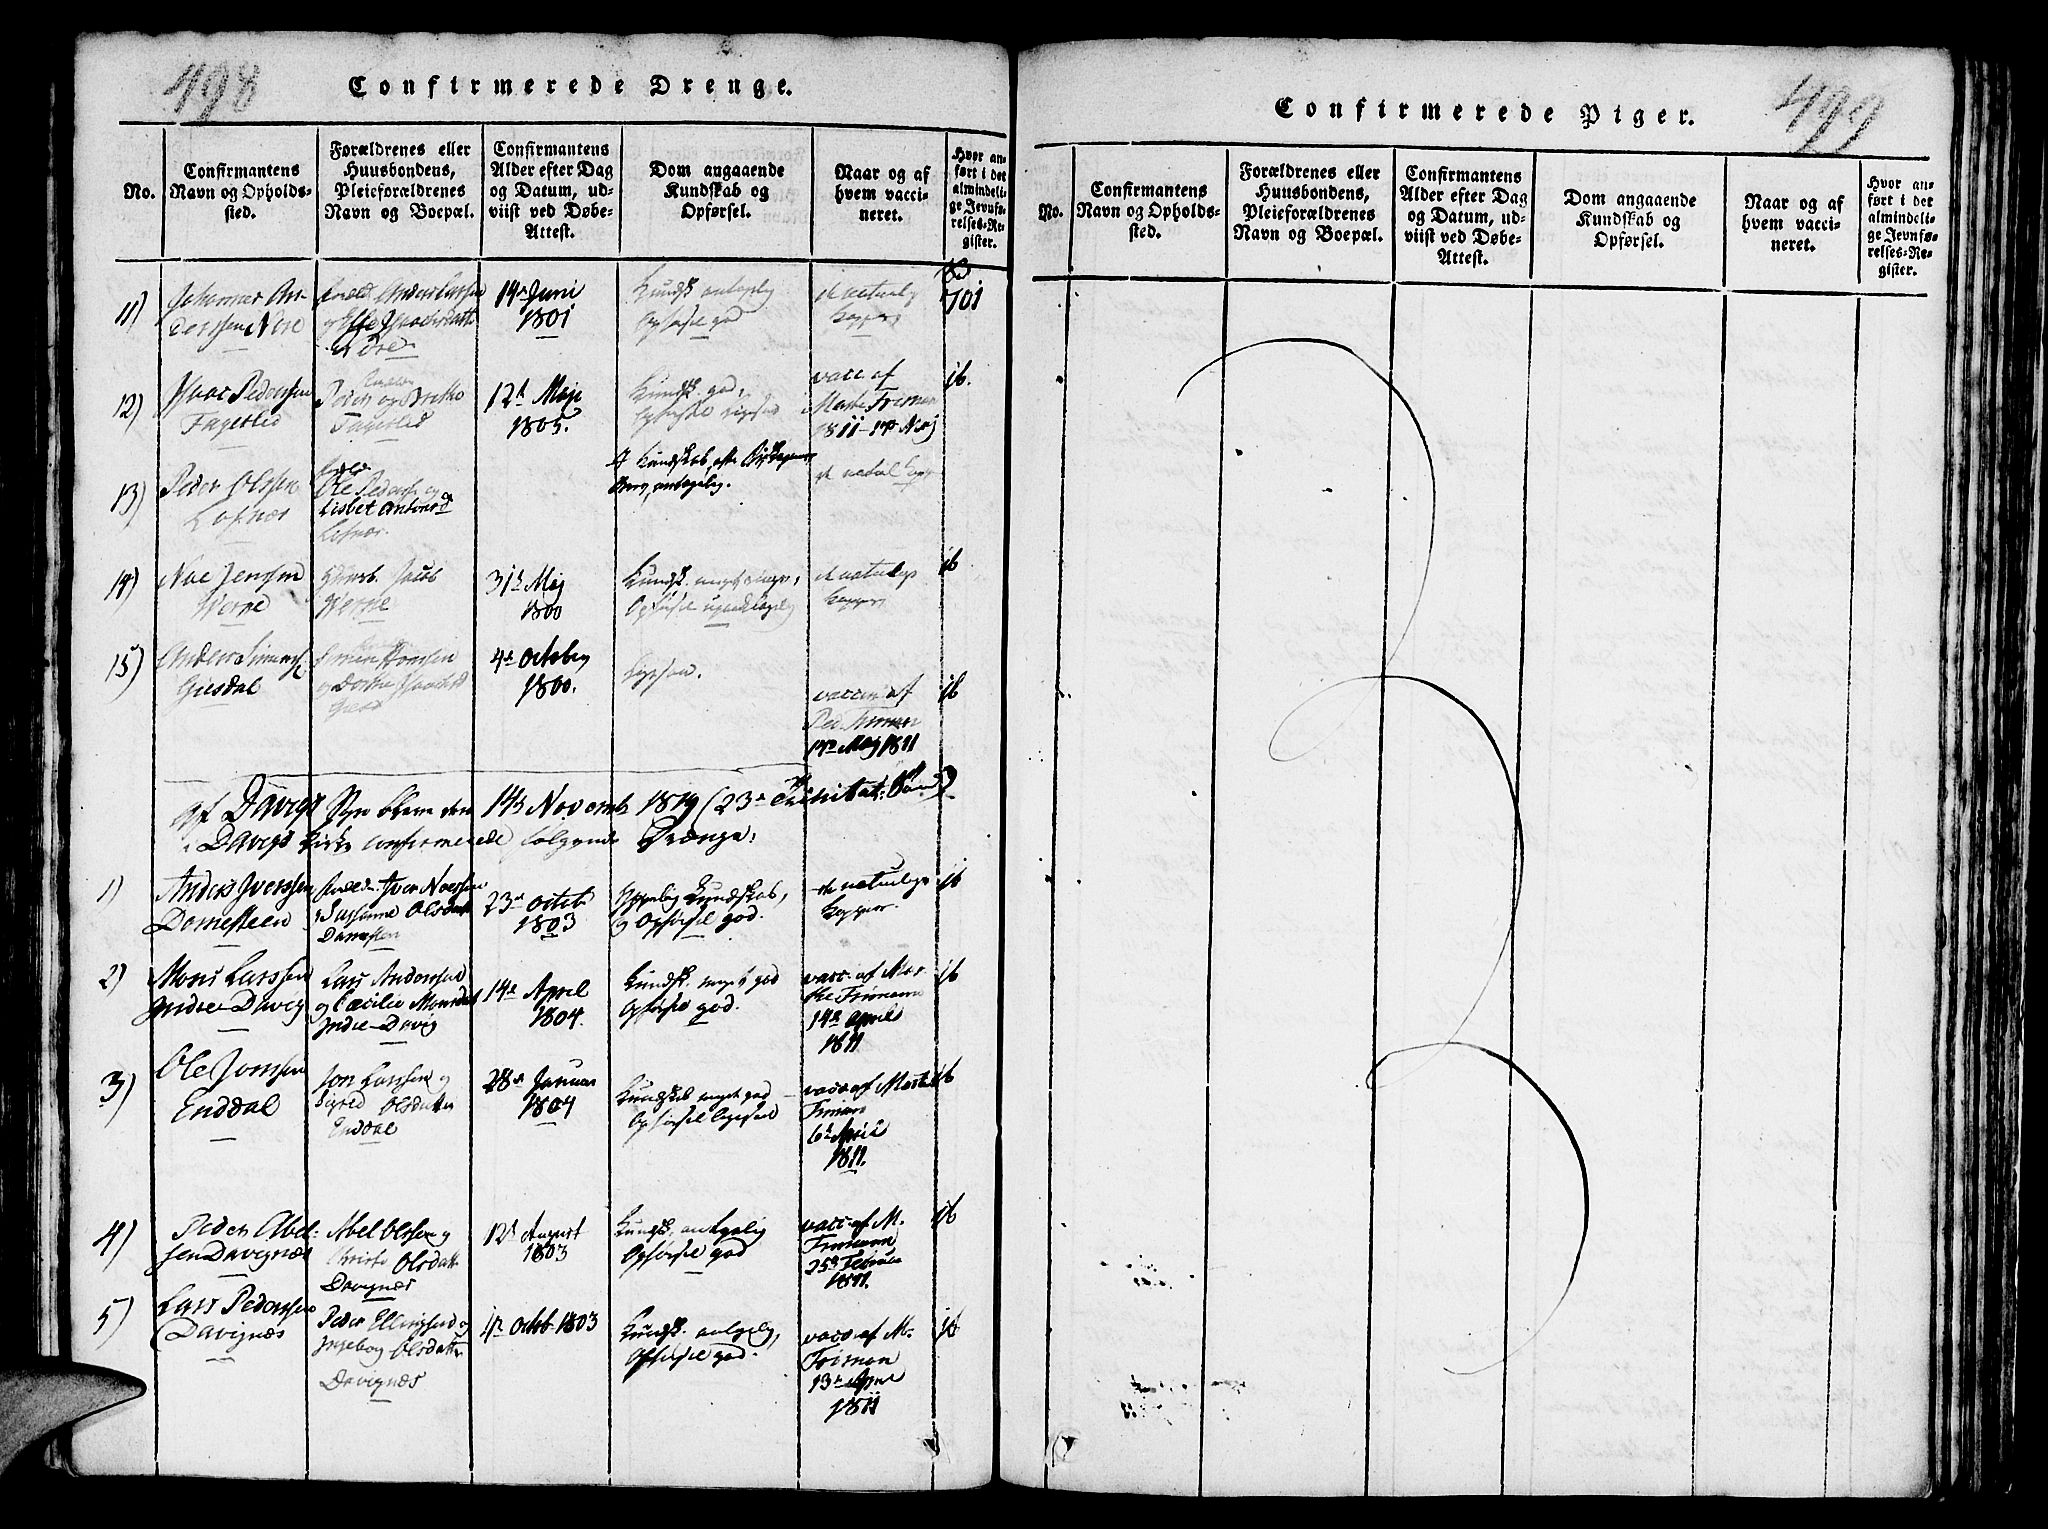 498
Confirmerede Drenge.
No.
Confirmantens
Navn og Opholds-
sted.
Forældrenes eller
Huusbondens,
Pleieforældrenes
Navn og Boepæl.
Confirmantens
Alder efter Dag
og Datum, ud-
viist ved Døbe-
Attest.
Dom angaaende
Kundskab og
Opførsel.
Naar og af
hvem vacci-
neret.
Hvor an-
ført i det
almindeli-
ge Jevnfø-
relses-Re-
gister.
11)
Johannes An-
derssen
Anders Larssen
14de Juni
1801
Kundsk. antagelig
Opførsel god
de naturlig
Kopper
701
12)
Isaac Pederssen
Fagerlid
Peder og
Fagerlid
12te Maji
1805.
Kundsk. god,
Opførsel
vacc. af
Marte Trimon
1811
ib.
13)
Peder Olssen
Lofnæs
Ole Pederss. og
Lisbet
Lofnæs.
Kundskab, efter
antagelig.
de naturl. Kopp
14)
Noe Jenssen
Werne
Jacob
Werne
31te Maj
1800
Kundsk. meget ringe,
Opførsel upaaklagelig
de naturlige
Kopper
ib
15)
Anders Simonss.
Giesdal
4de Octobr
1800.
vaccin. af
Ped. Trimon
Maj 1811
ib
af Davigs Sogn bleve den 14de Novemb. 1819 (23de Trinitat: Sønd)
i Davigs Kirke confirmerede følgende Drænge:
1)
Anders Iverssen
Domesteen
Foræld. Iver Noessen
Susanne Olsdatt.
23de Octob.
1803
Kundskab,
og Opførsel god.
de naturlige
Kopper.
ib
2)
Mons Larssen
Indre-Davig
Lars Anderssen
og Cæcilie Monsdat
Indre-Davig
14de April
1804.
Kundsk. meget god
Opførsel god.
vacc. af Mar-
the Trimann
14de April
1811
ib
3)
Ole Jonssen
Enddal
Jon Larssen og
Sigred Olsdatter
Enddal
28de Januar
1804
Kundskab meget god
Opførsel ligesaa
vacc. af Marte
Trimon
6te April
1811.
ib
4)
Peder Abel-
sen Davignæs
Abel Olssen og
Christi Olsdatt.
Davignæs
12te August
1803
Kundsk. antagelig
Opførsel god
vacc. af M.
Trimann
25de Februar
1811.
ib
5)
Lars Pederssen
Davignæs
Peder Ellingsen og
Ingeborg Olsdatter
Davignæs
Octob. 1803
Kundsk. antagelig,
Opførsel god.
vacc. af M.
Trimon
13de April
1811
ib
499
Confirmerede Piger.
No.
Confirmantens
Navn og Opholds-
sted.
Forældrenes eller
Huusbondens,
Pleieforældrenes
Navn og Boepæl.
Confirmantens
Alder efter Dag
og Datum, ud-
viist ved Døbe-
Attest.
Dom angaaende
Kundskab og
Opførsel.
Naar og af
hvem vacci-
neret.
Hvor an-
ført i det
almindeli-
ge Jevnfø-
relses-Re-
gister.